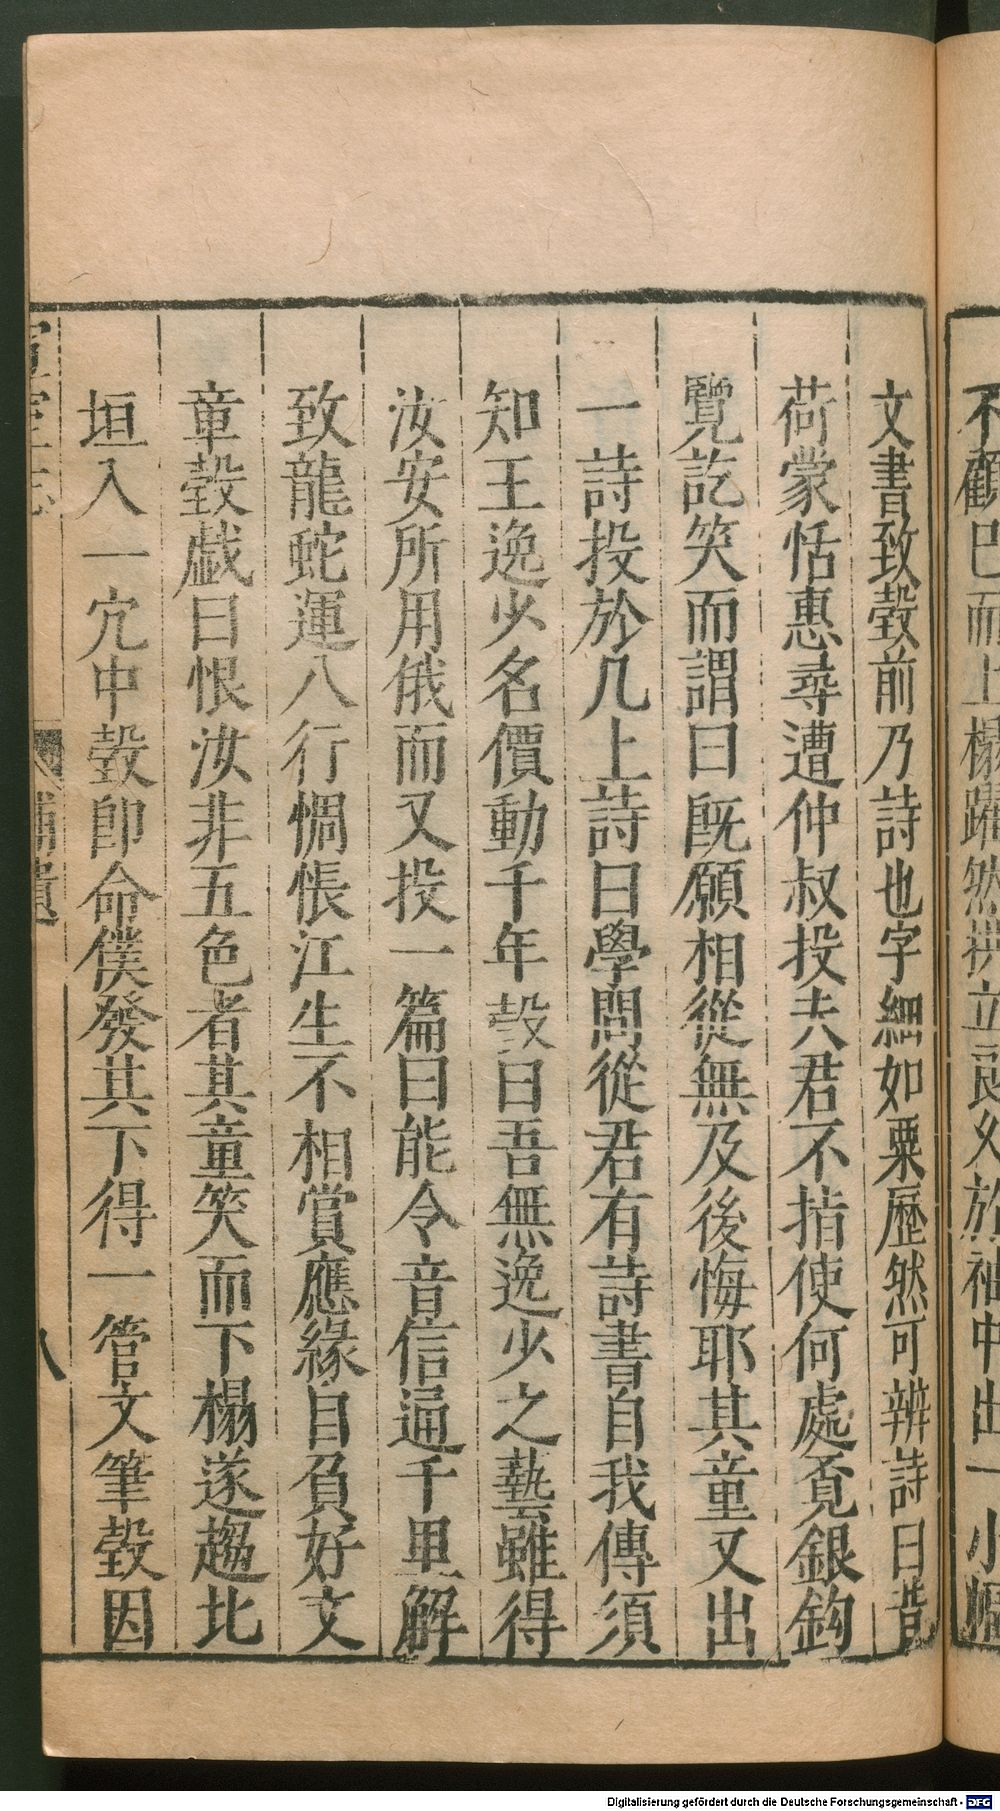 不顧㔾而上榻躍然拱立良久於袖中出一小幅
文書致瑴前乃詩也字細如粟歷然可辨詩曰昔
荷蒙恬惠尋遭仲叔投夫君不指使何處覔銀鈎
覽訖笑而謂曰旣願相從無及後悔耶其童又出
一詩投於几上詩曰學問從君有詩書自我傳須
知王逸少名價動千年瑴曰吾無逸少之藝雖得
汝安所用俄而又投一篇曰能令音信通千里解
致龍蛇運八行惆悵江生不相賞應緣自負好文
章瑴戯曰恨汝非五色者其童笑而下榻遂趨北
垣入一穴中瑴卽命僕發其下得一管文筆瑴因
宣室志 補遺 八
Digitalisierung gefördert durch die Deutsche Forschungsgemeinschaft - DFG